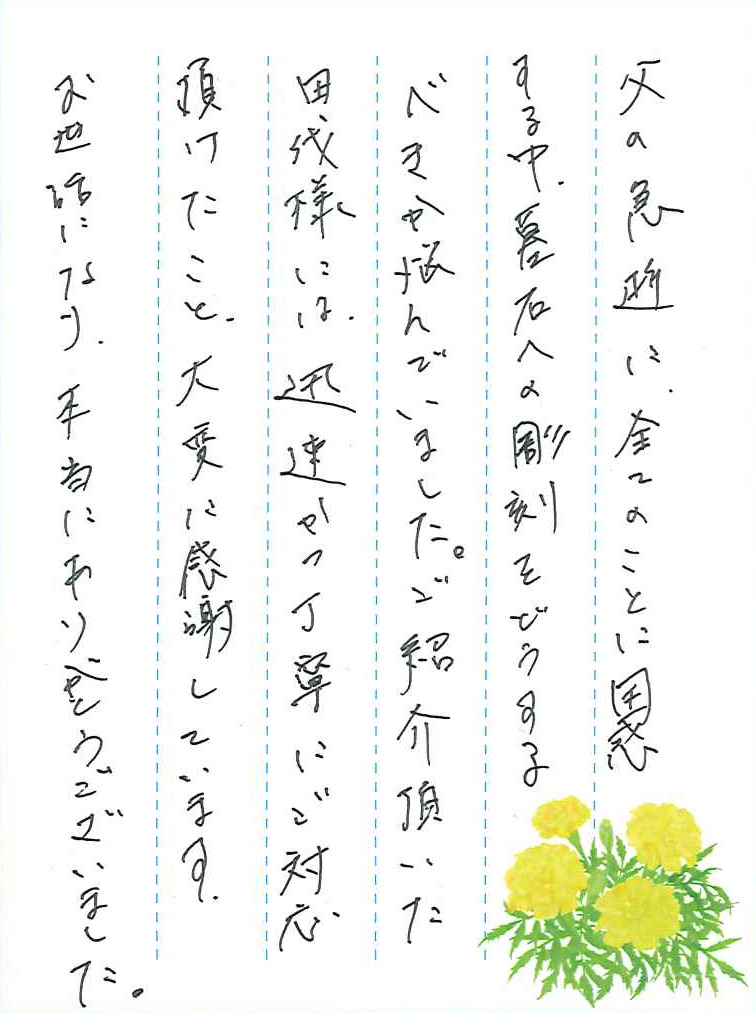 父の急逝に、全てのことに困惑
する中、墓石への彫刻をどうする
べきか悩んでいました。ご紹介頂いた
田代様には、迅速かつ丁寧にご対応
頂けたこと、大変に感謝しています。
お世話になり、本当にありがとうございました。